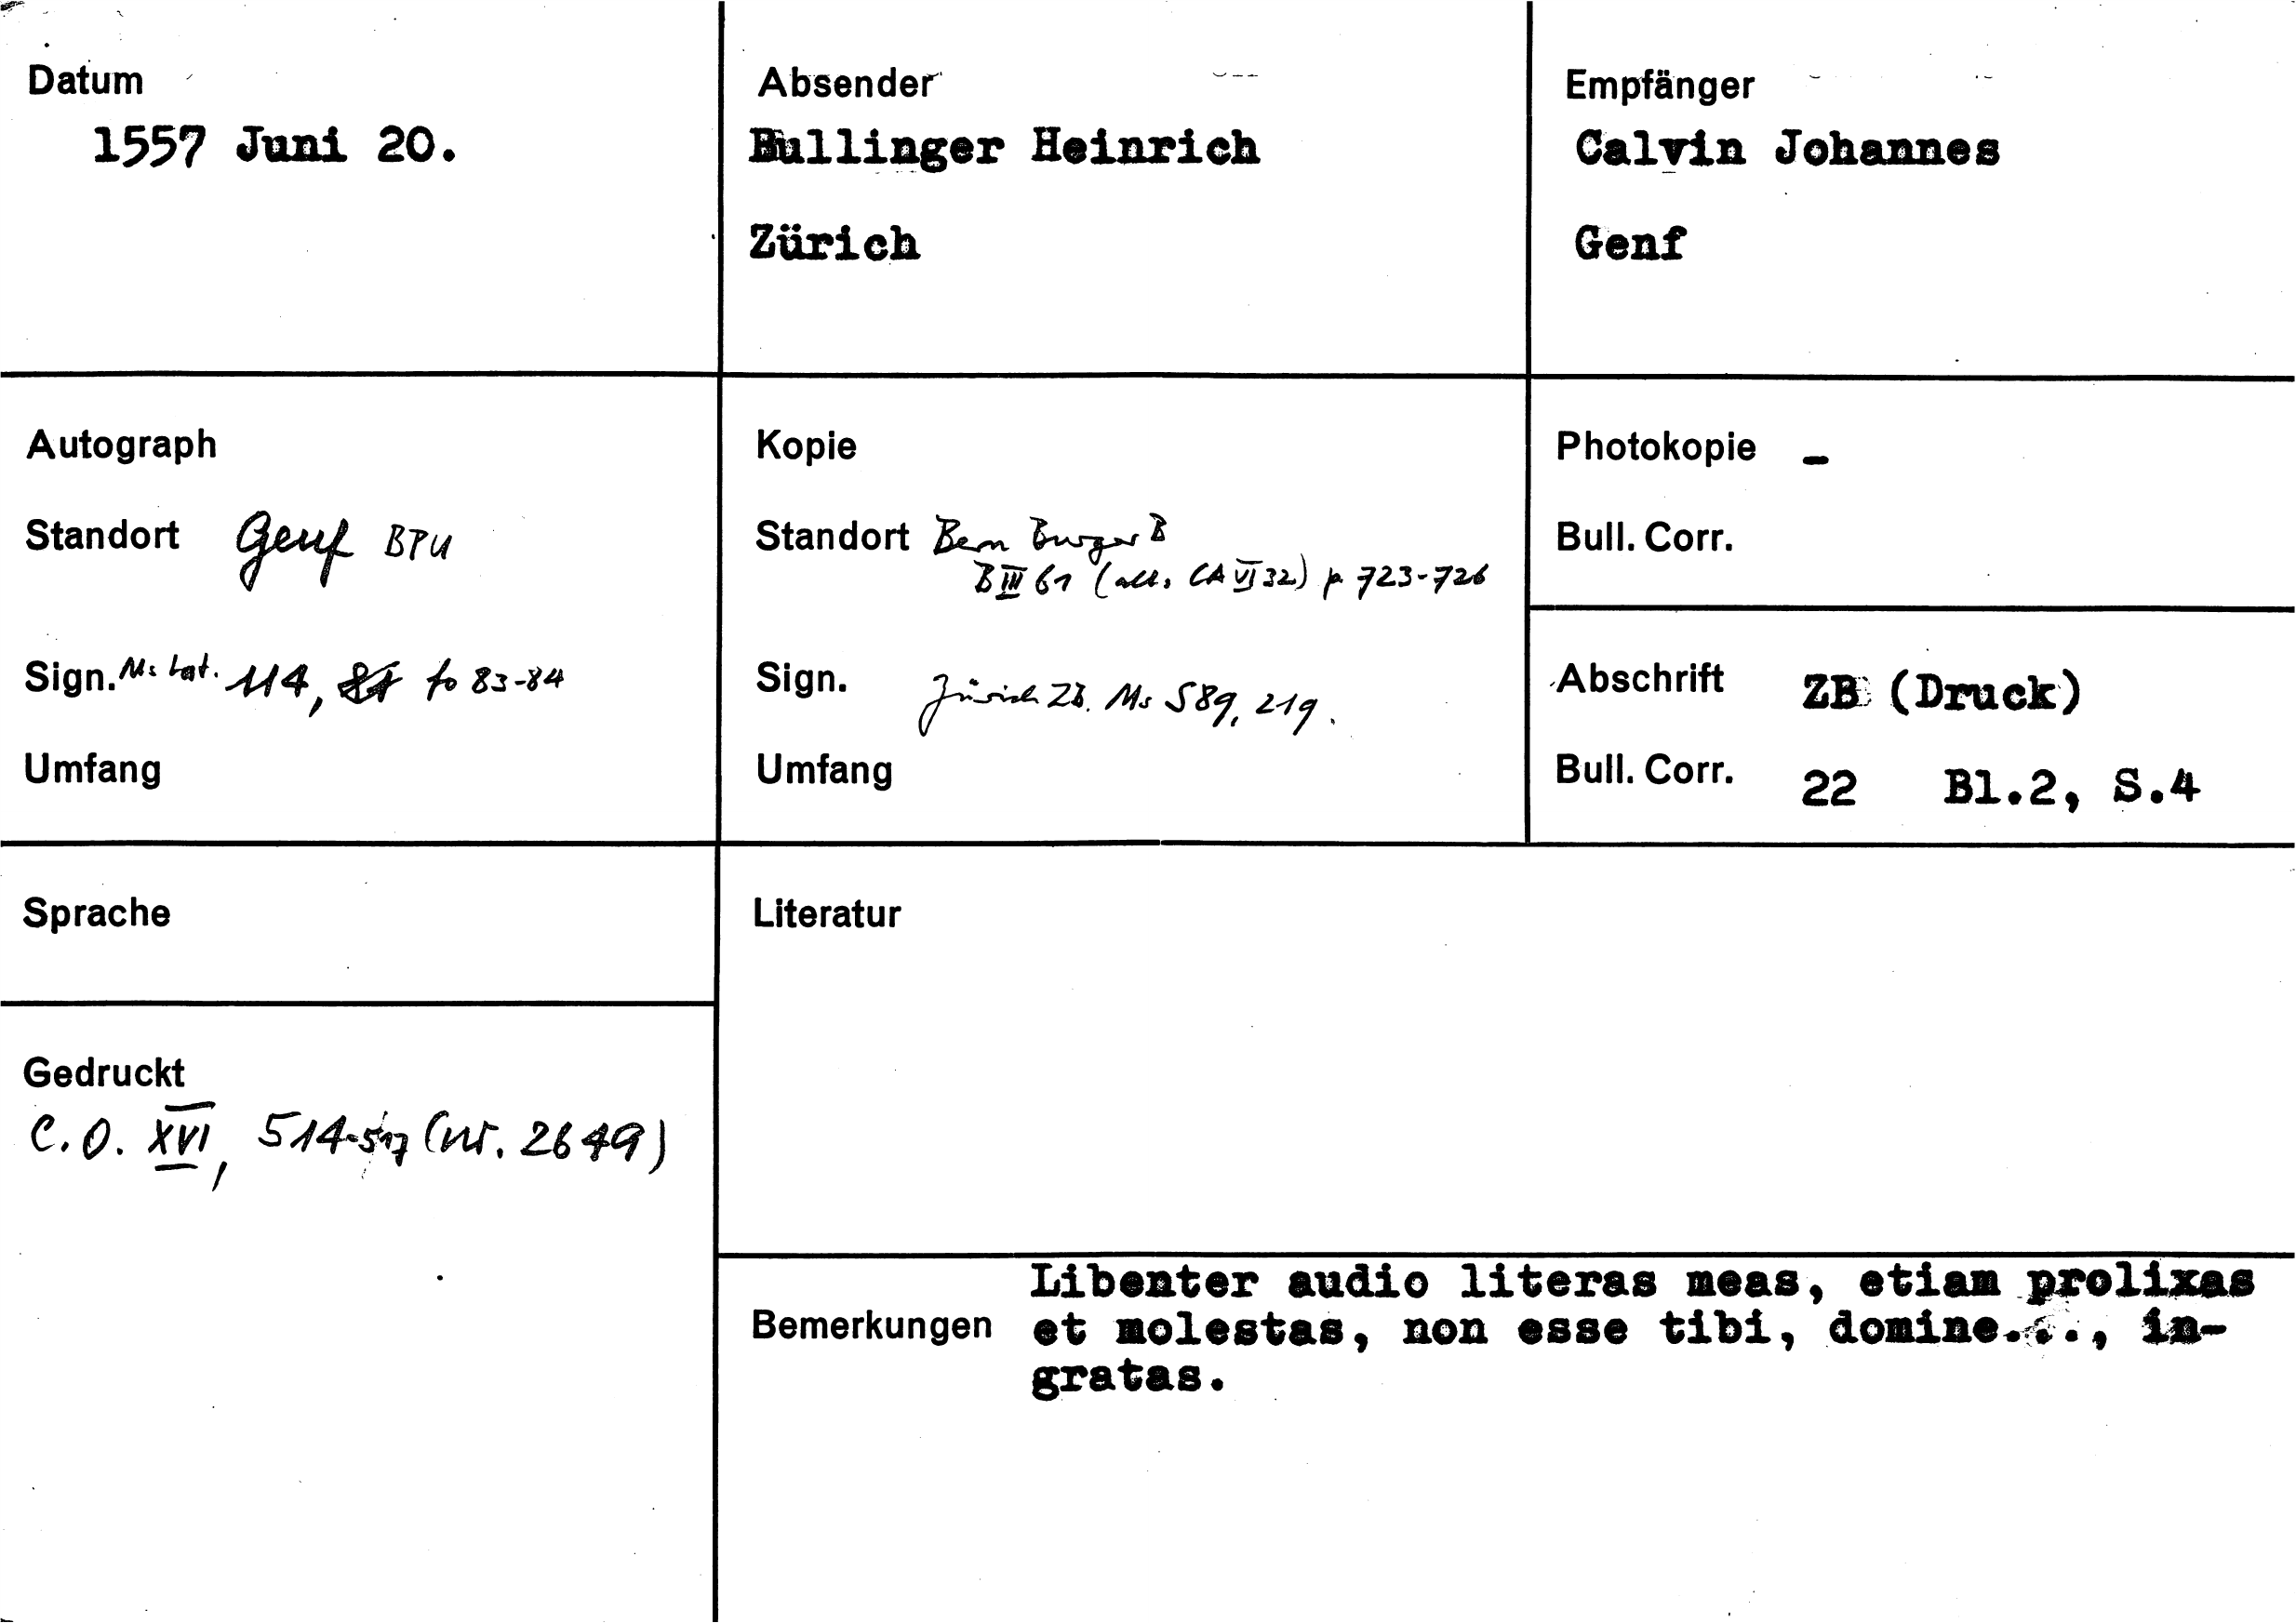 Datum
1557 Juni 20.
Absender
Bullinger Heinrich
Zürich
Empfänger
Calvin Johannes
Genf
Autograph
Standort Genf BPU
Sign. Ms lat. 114, fo 83-84
Umfang
Kopie
Standort Bern Burger B
B III 61 (all. CA VI 32) p 723-726
Sign. Zürich ZB. Ms S 89, 219.
Umfang
Photokopie -
Bull. Corr.
Abschrift ZB (Druck)
Bull. Corr. 22 Bl.2, S.4
Sprache
Gedruckt
C.O. XVI, 514-517 (Nr. 2649)
Literatur
Bemerkungen
Libenter audio literas meas, etiam prolixas
et molestas, non esse tibi, domine..., in-
gratas.